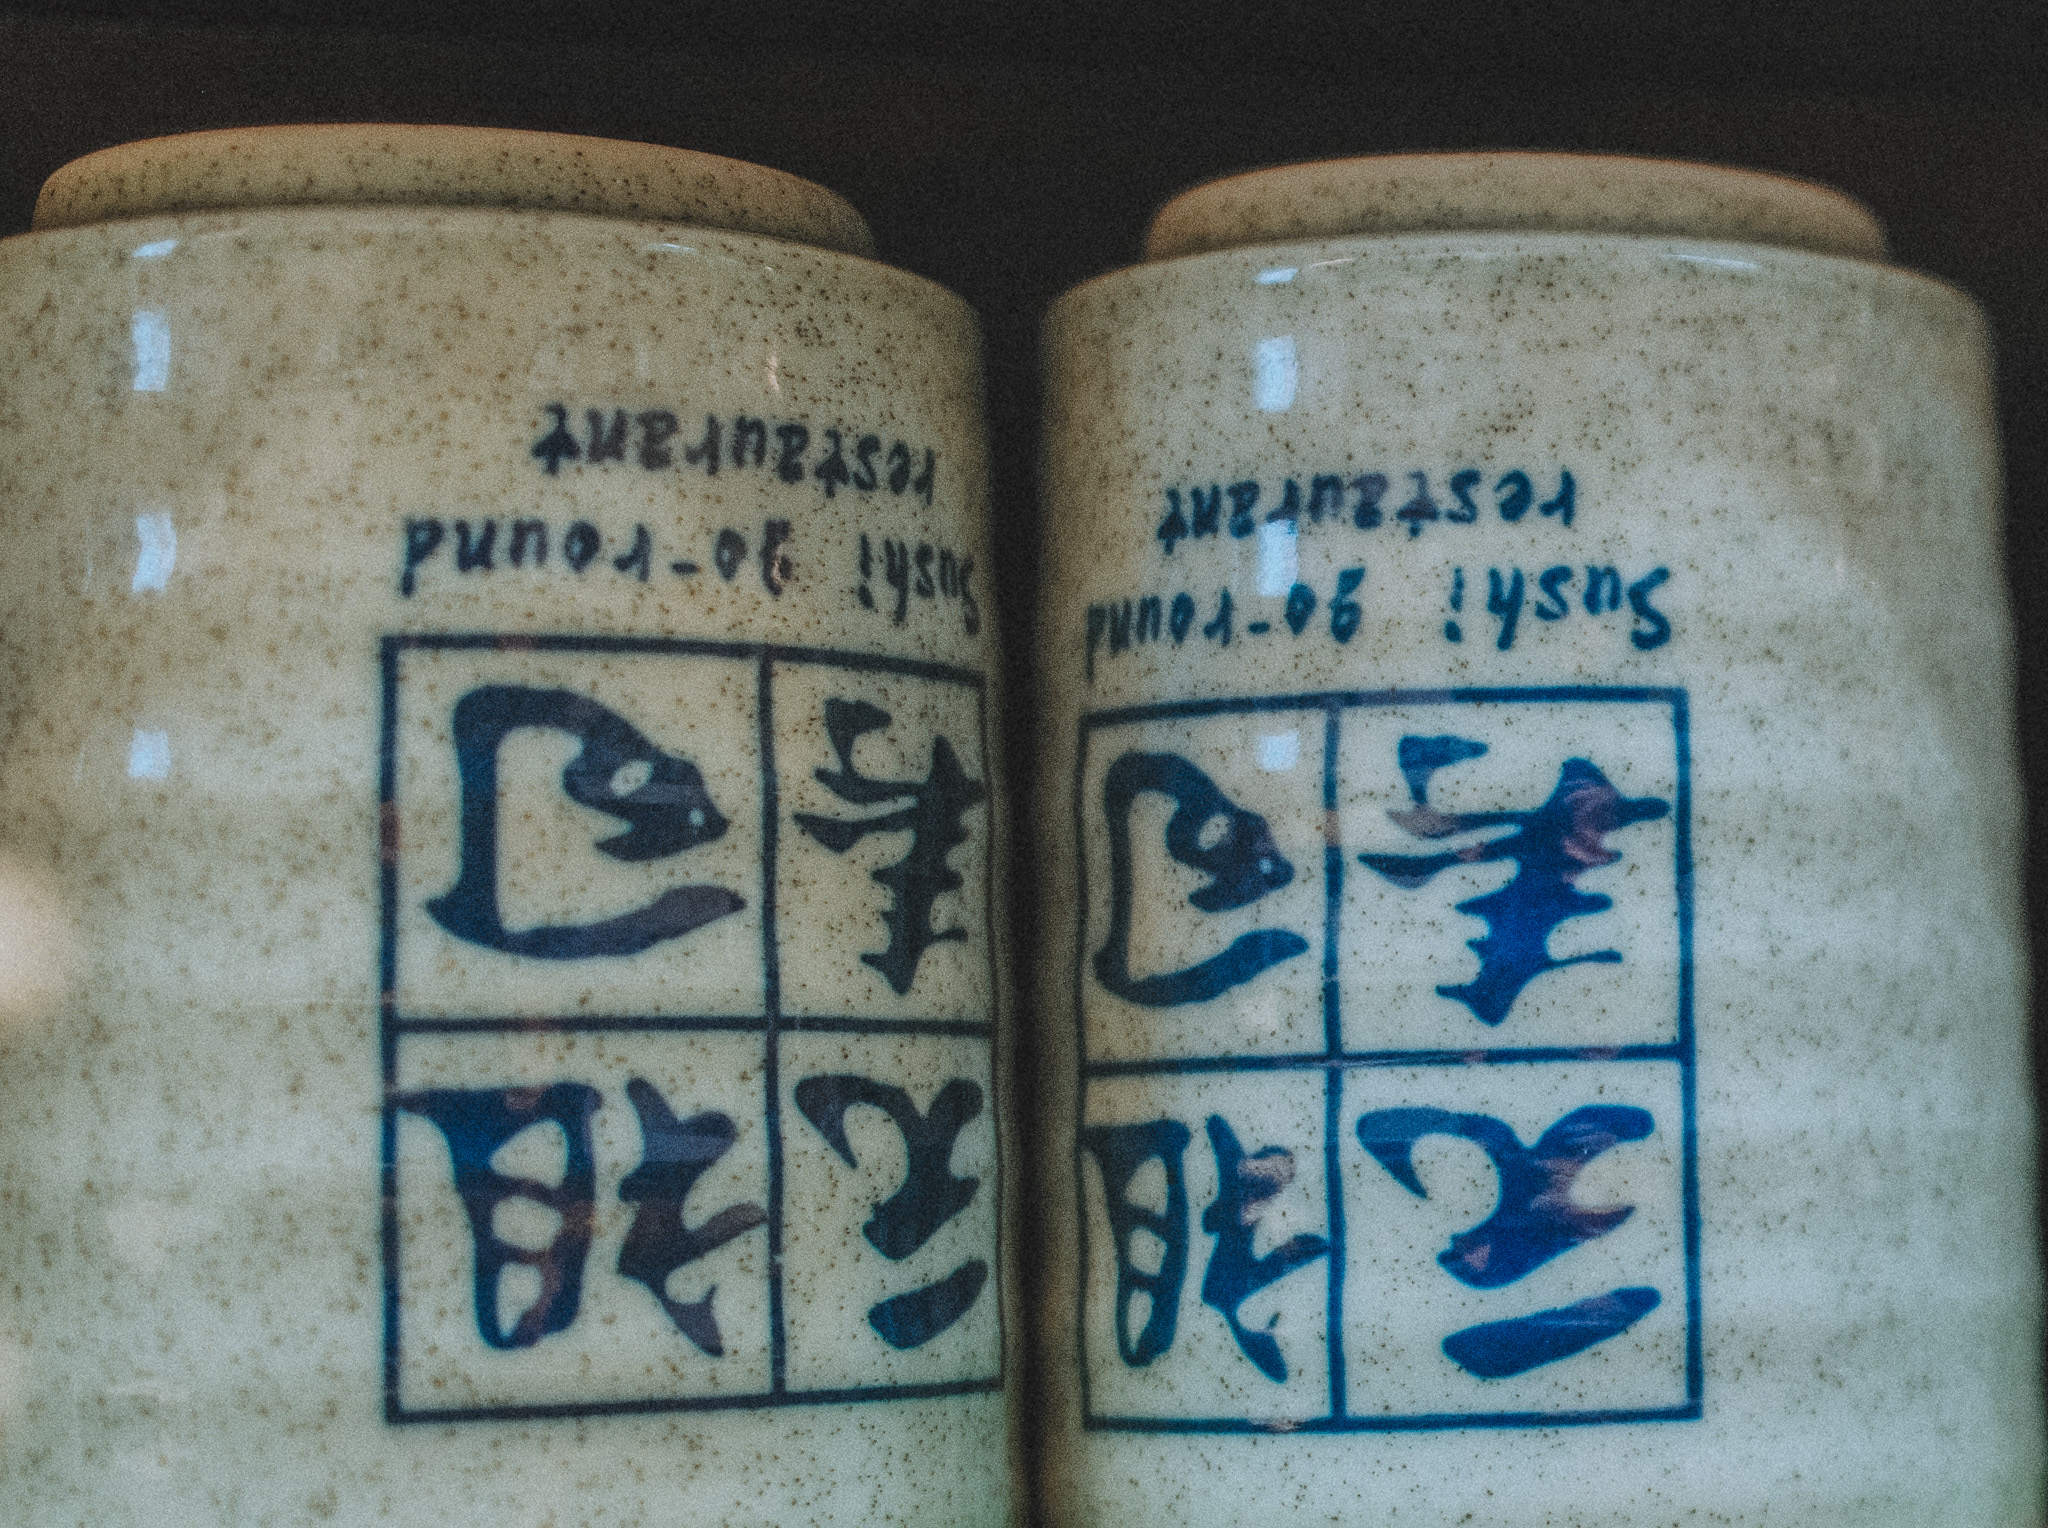 元祖
寿司
Sushi go-round
restaurant
元祖
寿司
Sushi go-round
restaurant